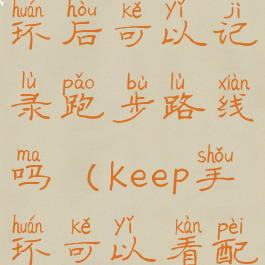 huán hòu kě yǐ jì
环后可以记
lù pǎo bù lù xiàn
录跑步路线
ma shǒu
吗(Keep手
huán kě yǐ kàn pèi
环可以看配